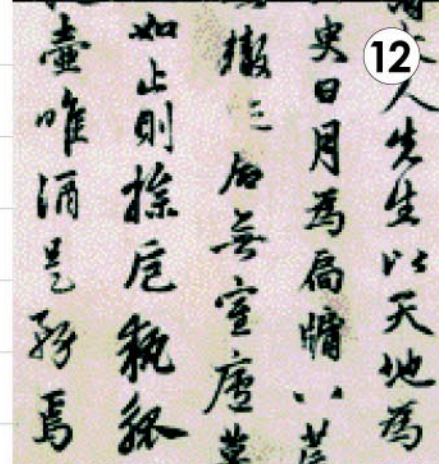 12
人先生以天地為
臾日月為扃牖八荒
轍迹居無室廬幕
如止則操卮執觚
壺唯酒是務焉